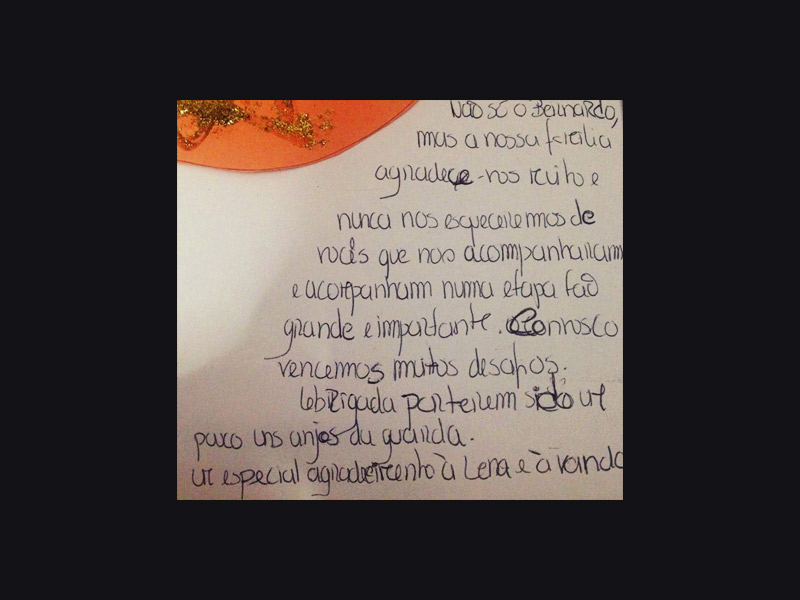 Não só o Bernardo,
mas a nossa família
agradece-nos muito e
nunca nos esqueceremos de
vocês que nos acompanharam
e acompanham numa etapa tão
grande e importante. Connosco
vencemos muitos desafios.
Obrigada por terem sido um
pouco uns anjos da guarda.
um especial agradecimento à Lena e à Vanda